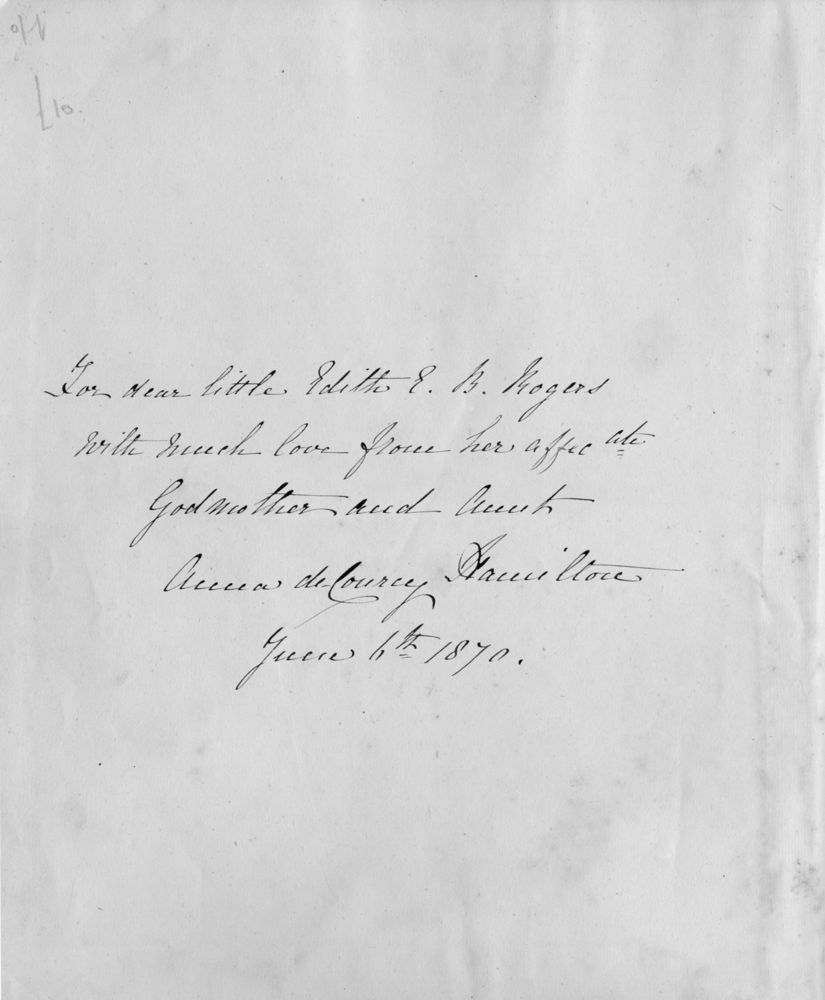 £10.
For dear little Edith E. B. Rogers
With much love from her affec ate
Godmother and Aunt
Anna deCourcy Hamilton
June 6th 1870.